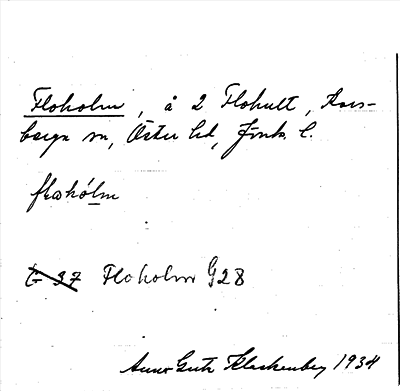 Floholm, å 2 Flohult, Kors-
berga sn, Öster hd, Jönk. l.
fləohólm
G 37 Floholm G28
Anna Greta Klackenberg 1934